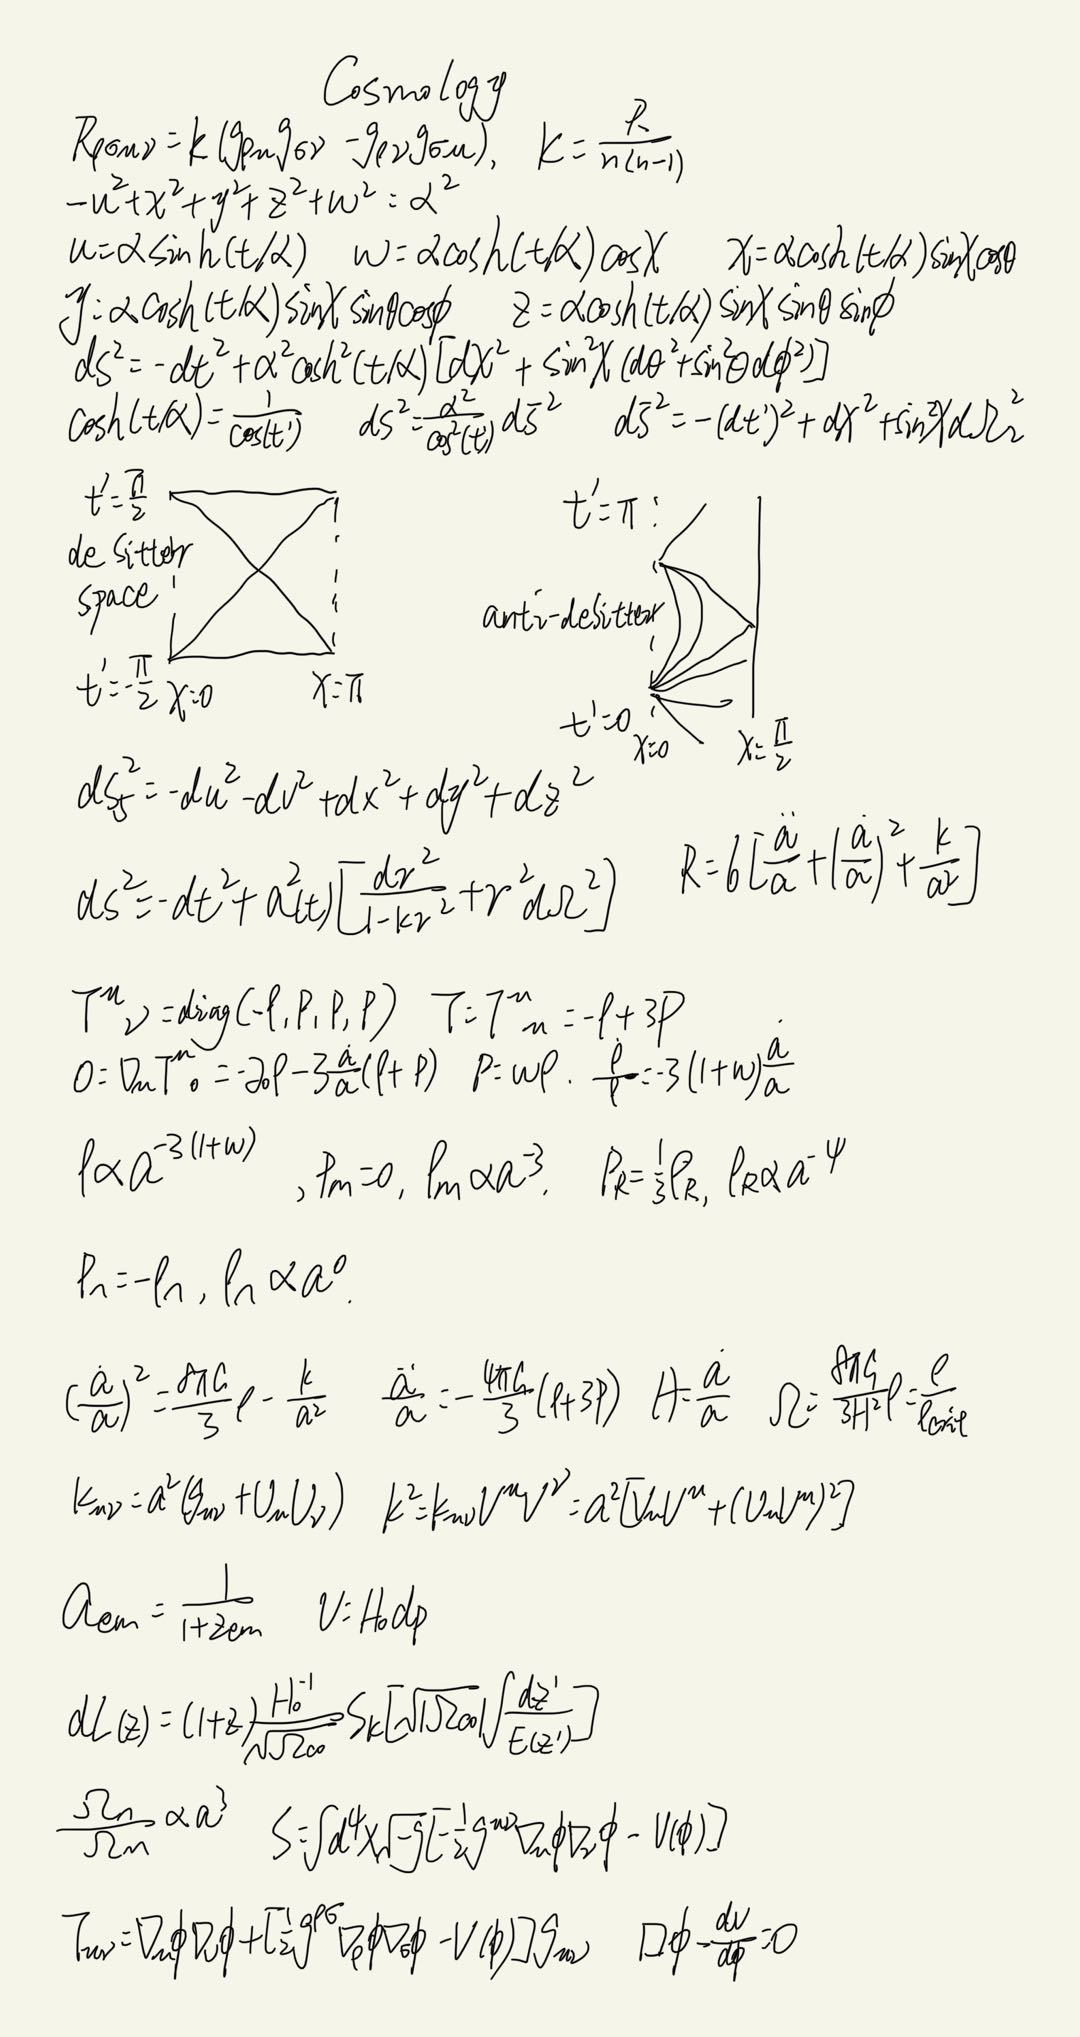 Cosmology
Rρσμν = k(gρμgσν - gρνgσμ), k = R/n(n-1)
-u²+x²+y²+z²+w² = α²
u = αsinh(t/α) w = αcosh(t/α)cosχ x = αcosh(t/α)sinχcosθ
y = αcosh(t/α)sinχsinθcosϕ z = αcosh(t/α)sinχsinθsinϕ
ds² = -dt² + α²cosh²(t/α)[dχ² + sin²χ(dθ²+sin²θdϕ²)]
cosh(t/α) = 1/cos(t') ds² = α²/cos²(t') ds̄² ds̄² = -(dt')² + dχ² + sin²χdΩ₂²
t' = π/2
de sitter
space
t' = -π/2 χ=0 χ=π
t' = π
anti-desitter
t'=0 χ=0 χ=π/2
ds₅² = -du² - dv² + dx² + dy² + dz²
ds² = -dt² + a²(t)[dr²/1-kr² + r²dΩ²] R = 6[ä/a + (ȧ/a)² + k/a²]
Tμν = diag(-ρ, p, p, p) T = Tμμ = -ρ+3p
0 = ∇μTμ0 = -∂0ρ - 3ȧ/a(ρ+p) p = wρ. ρ̇/ρ = -3(1+w)ȧ/a
ρ∝a^-3(1+w), pm=0, ρm∝a⁻³. pR = 1/3ρR, ρR∝a⁻⁴
pΛ = -ρΛ, ρΛ∝a⁰.
(ȧ/a)² = 8πG/3 ρ - k/a² ä/a = -4πG/3(ρ+3p) H = ȧ/a Ω = 8πG/3H² ρ = ρ/ρcrit
Kμν = a²(gμν + UμUν) K² = KμνVμVν = a²[VμVμ + (UμVμ)²]
aem = 1/1+zem V = H₀dp
dL(z) = (1+z) H₀⁻¹/√Ωc0 Sk[√|Ωc0| ∫dz'/E(z')]
ΩΛ/Ωm ∝ a³ S = ∫d⁴x√-g[-1/2 gμν∇μϕ∇νϕ - V(ϕ)]
Tμν = ∇μϕ∇νϕ + [-1/2 gρσ∇ρϕ∇σϕ - V(ϕ)]gμν □ϕ - dV/dϕ = 0